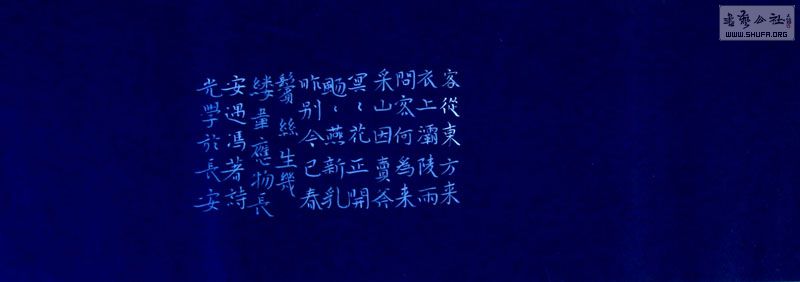 客從東方来
衣上灞陵雨
問客何為来
采山因賣斧
冥〻花正開
颺〻燕新乳
昨别今已春
鬢絲生幾
縷韋應物長
安遇馮著詩
光學於長安
書藝公社
WWW.SHUFA.ORG